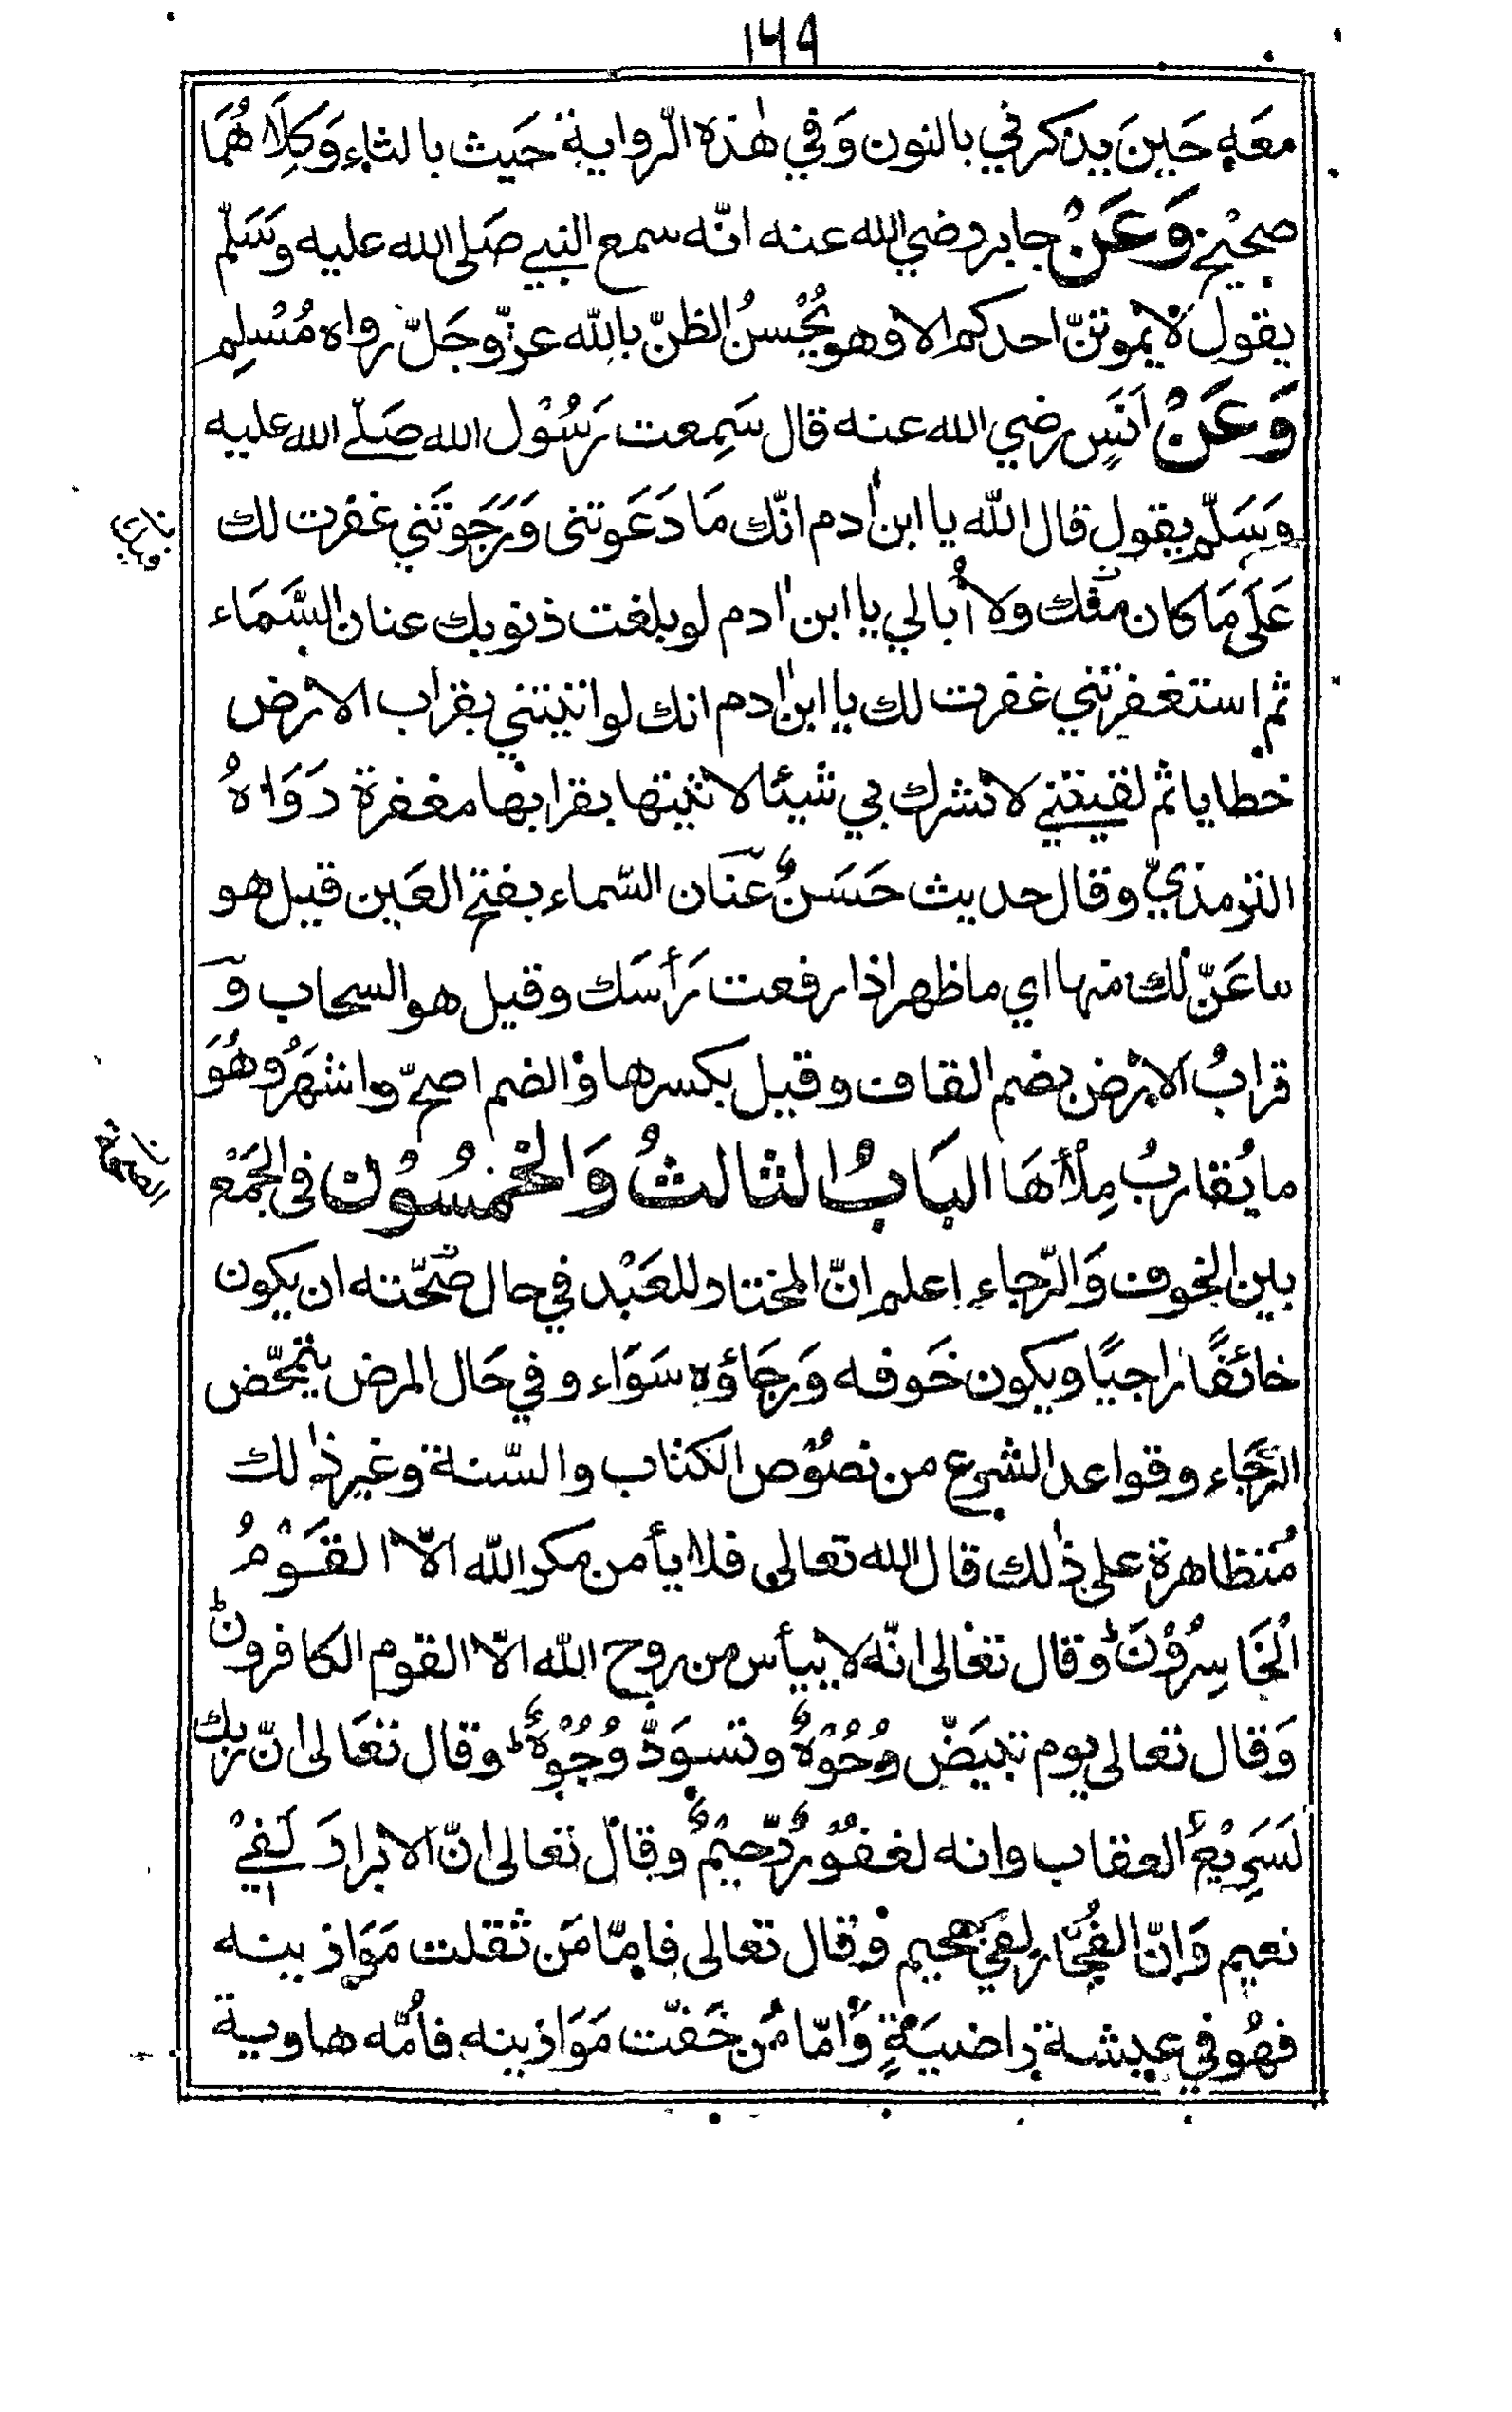 ١٦٩
معه حَينَ يذكرني بالنون وَفي هٰذه الرّواية حَيث بالثاء وَكِلَاهُمَا
صحيحٌ وَعَنْ جابر رضي الله عنه انّه سمع النبي صَلى الله عليه وَسَلّم
يقول لَا يموتنّ احدكم الا وهو يُحْسنُ الظنّ بالله عزّ وجَلّ رواه مُسْلِم
وَعَنْ اَنَسٍ رضي الله عنه قال سَمِعت رَسُوْل الله صَلّے الله عليه
وَسَلّم يقول قال الله يا ابن اٰدم انّك مَا دَعَوتنى وَرَجَوتَني غفرت لك
عَلَى مَا كان منك ولا أُبالي يا ابن اٰدم لو بلغت ذنوبك عنان السَّمَاء
ثم استغفرتني غفرت لك يا ابن اٰدم انك لو اتيتني بقراب الارض
خطايا ثم لقيتني لا تشرك بي شيئا لاتيتها بقرابها مغفرة رَوَاهُ
الترمذيّ وقال حديث حَسَنٌ عَنَان السّماء بفتح العَين قيل هو
ما عَنّ لك منها اي ما ظهر اذا رفعت رَأسَك وقيل هو السحاب وَ
قرابُ الارض بضم القاف وقيل بكسرها والضم اصحّ واشهَرُ وهُوَ
ما يُقاربُ مِلْأَهَا البَابُ الثالثُ وَالخَمْسُوْن فى الجَمْع
بين الخوف وَالرّجاء اعلم انّ المختار للعَبْد في حال صحّته ان يكون
خائفًا راجيًا ويكون خَوفه وَرجَاؤه سَوَاء وفي حَال المرض يتمحّض
الرّجَاء وقواعد الشرع من نصُوْص الكتاب والسّنة وغير ذٰلك
مُتظاهرة على ذٰلك قال الله تعالى فلا يأمن مكر الله الّا القَوْمُ
الْخَاسِرُوْنَ وقال تعَالى انّه لا ييأس من روح الله الّا القوم الكافرون
وَقال تعالى يوم تبيَضّ وُجُوْهٌ وتسوَدّ وُجُوْهٌ وقال تعَالى انّ ربك
لَسَرِيْعُ العقاب وانه لغفُوْرٌ رّحيْمٌ وقال تعالى انّ الابرارَ لَفيْ
نعيم وَانّ الفُجَّار لفيْ جحيم وقال تعالى فامّا مَن ثقلت مَوَازينه
فهُو في عيشة راضيَةٍ وَامّا مَن خَفّت مَوَازينه فأُمّه هاوية